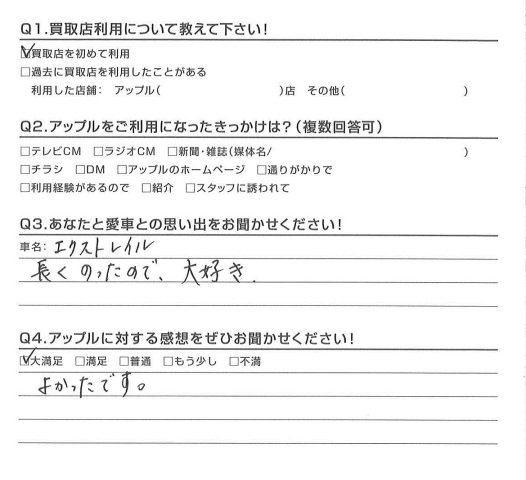 Q1.買取店利用について教えて下さい!
☑買取店を初めて利用
□過去に買取店を利用したことがある
利用した店舗: アップル( )店 その他( )
Q2.アップルをご利用になったきっかけは?(複数回答可)
□テレビCM □ラジオCM □新聞・雑誌(媒体名/ )
□チラシ □DM □アップルのホームページ □通りがかりで
□利用経験があるので □紹介 □スタッフに誘われて
Q3.あなたと愛車との思い出をお聞かせください!
車名: エクストレイル
長くのったので、大好き.
Q4.アップルに対する感想をぜひお聞かせください!
☑大満足 □満足 □普通 □もう少し □不満
よかったです。